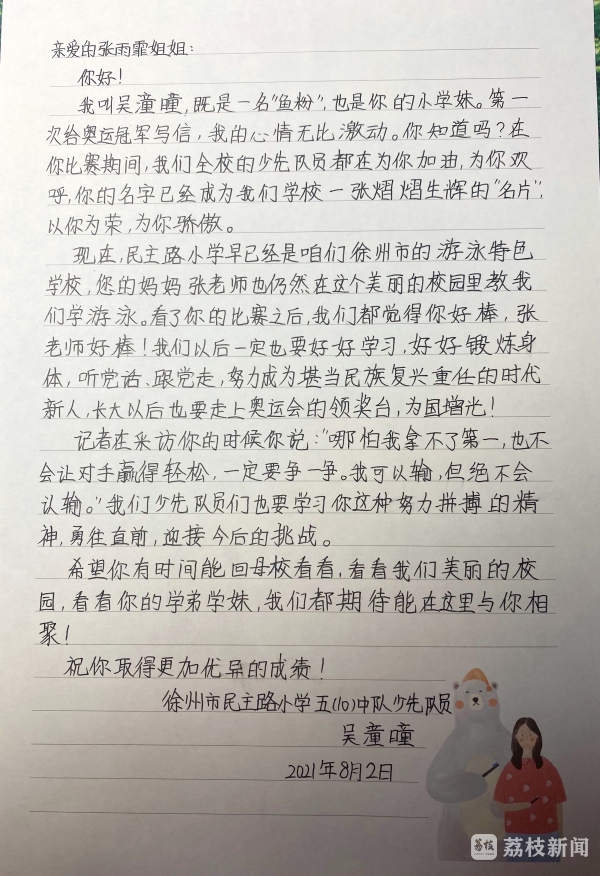 亲爱的张雨霏姐姐：
你好！
我叫吴潼曈，既是一名“鱼粉”，也是你的小学妹。第一
次给奥运冠军写信，我的心情无比激动。你知道吗？在
你比赛期间，我们全校的少先队员都在为你加油，为你欢
呼，你的名字已经成为我们学校一张熠熠生辉的“名片”，
以你为荣，为你骄傲。
现在，民主路小学早已经是咱们徐州市的游泳特色
学校，您的妈妈张老师也仍然在这个美丽的校园里教我
们学游泳。看了你的比赛之后，我们都觉得你好棒，张
老师好棒！我们以后一定也要好好学习，好好锻炼身
体，听党话、跟党走，努力成为堪当民族复兴重任的时代
新人，长大以后也要走上奥运会的领奖台，为国增光！
记者在采访你的时候你说：“哪怕我拿不了第一，也不
会让对手赢得轻松，一定要争一争。我可以输，但绝不会
认输。”我们少先队员们也要学习你这种努力拼搏的精
神，勇往直前，迎接今后的挑战。
希望你有时间能回母校看看，看看我们美丽的校
园，看看你的学弟学妹，我们都期待能在这里与你相
聚！
祝你取得更加优异的成绩！
徐州市民主路小学五(10)中队少先队员
吴潼曈
2021年8月2日
荔枝 荔枝新闻